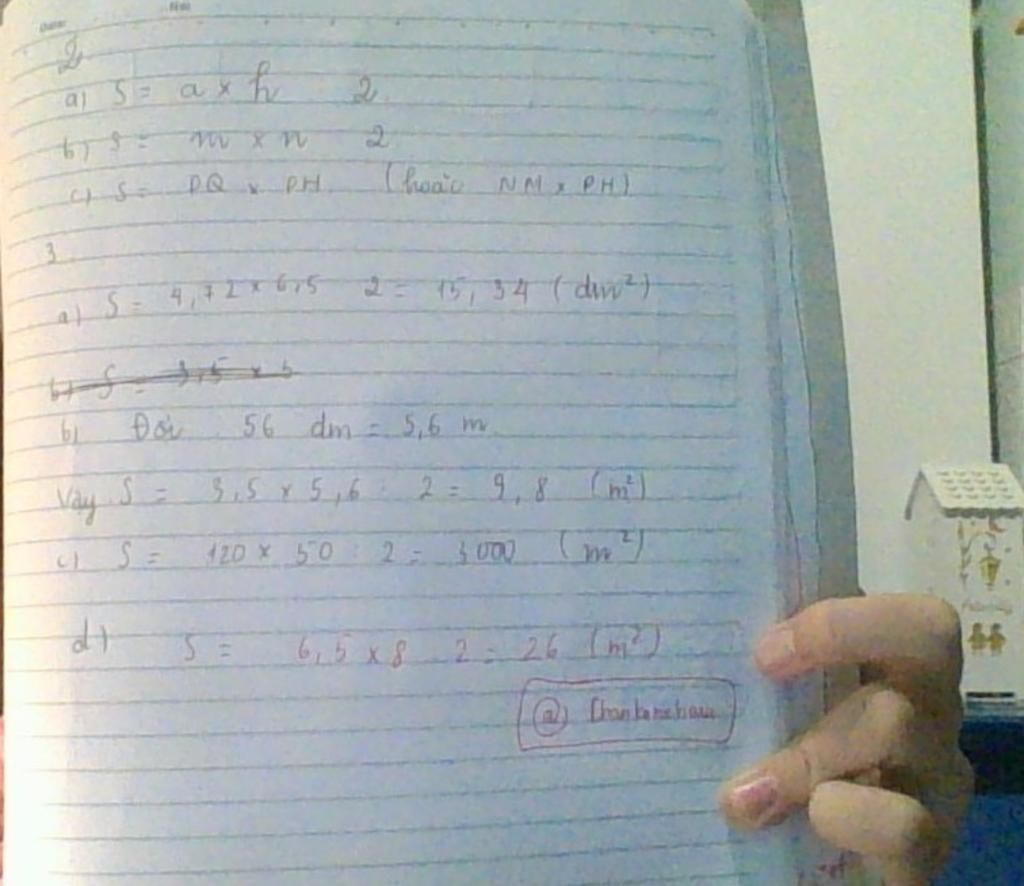 No:
2
a) S = a x h 2
b) S = m x n 2
c) S = PQ x PH (hoặc NM x PH)
3.
a) S = 4,72 x 6,5 2 = 15,34 (dm²)
b) S = 3,5 x 5
b) Đổi 56 dm = 5,6 m
Vậy S = 3,5 x 5,6 : 2 = 9,8 (m²)
c) S = 120 x 50 : 2 = 3000 (m²)
d) S = 6,5 x 8 2 = 26 (m²)
@)